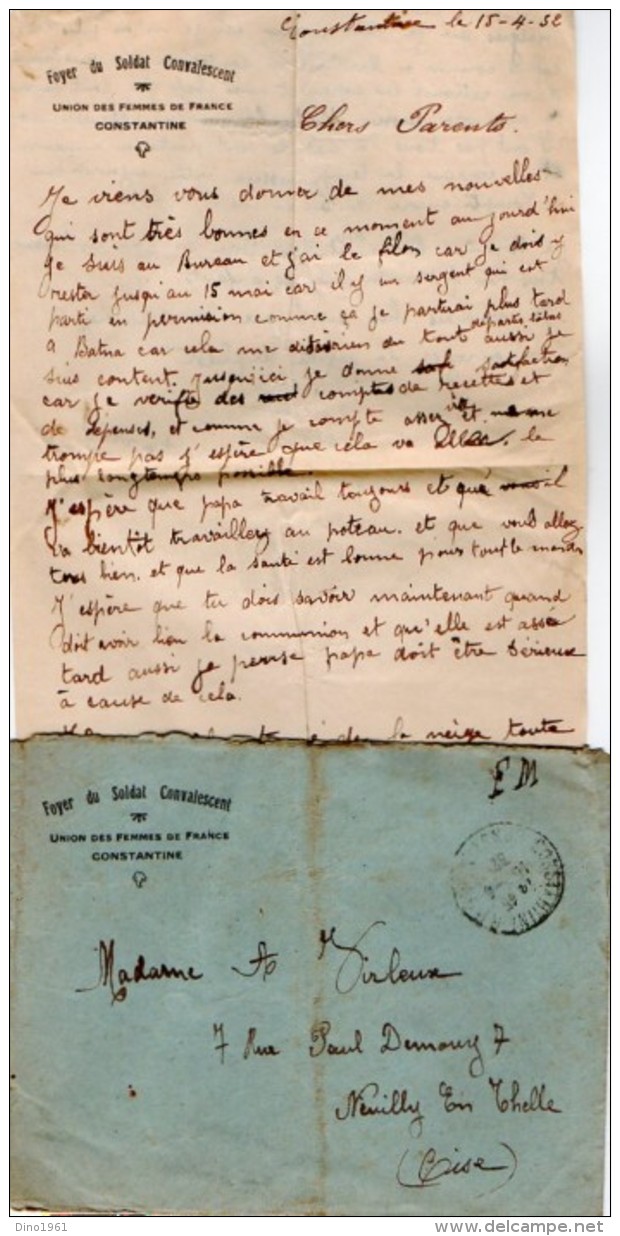 Constantine le 15-4-32
Foyer du Soldat Convalescent
UNION DES FEMMES DE FRANCE
CONSTANTINE
Chers Parents.
Je viens vous donner de mes nouvelles
qui sont très bonnes en ce moment aujourd'hui
je suis au Bureau et j'ai le filon car je dois y
rester jusqu'au 15 mai car il y un sergent qui est
parti en permission comme ça je partirai plus tard
a Batna car cela me rien du tout aussi je
suis content. Jusqu'ici je donne satisfaction
car je verifie des comptes de recettes et
de depenses, et comme je compte assez vite et ne me
trompe pas j'espère que cela va aller le
plus longtemps possible.
J'espère que papa travail toujours et qu'il
va bientôt travailler au poteau. et que vous allez
tous bien. et que la santé est bonne pour tout le monde
J'espère que tu dois savoir maintenant quand
doit avoir lieu la communion et qu'elle est assé
tard aussi je pense papa doit être sérieux
à cause de cela.
de la neige toute
Foyer du Soldat Convalescent
UNION DES FEMMES DE FRANCE
CONSTANTINE
F M
CONSTANTINE
Madame A Virleux
7 Rue Paul Demouy 7
Neuilly En Thelle
(Oise)
Dino1961
delcampe.net